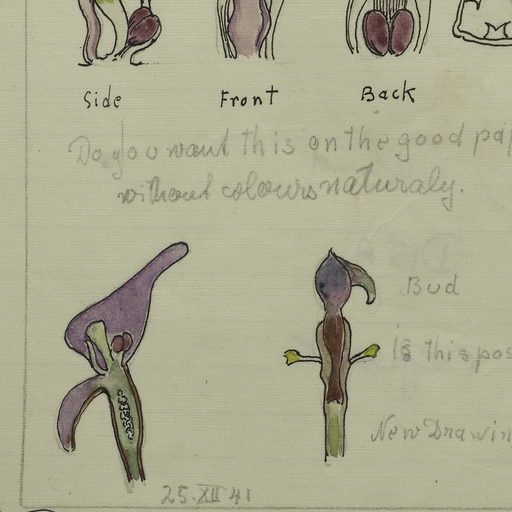 Side Front Back
Do you want this on the good pap
without colours naturaly.
Bud
Is this pos
New Drawin
25.XII 41